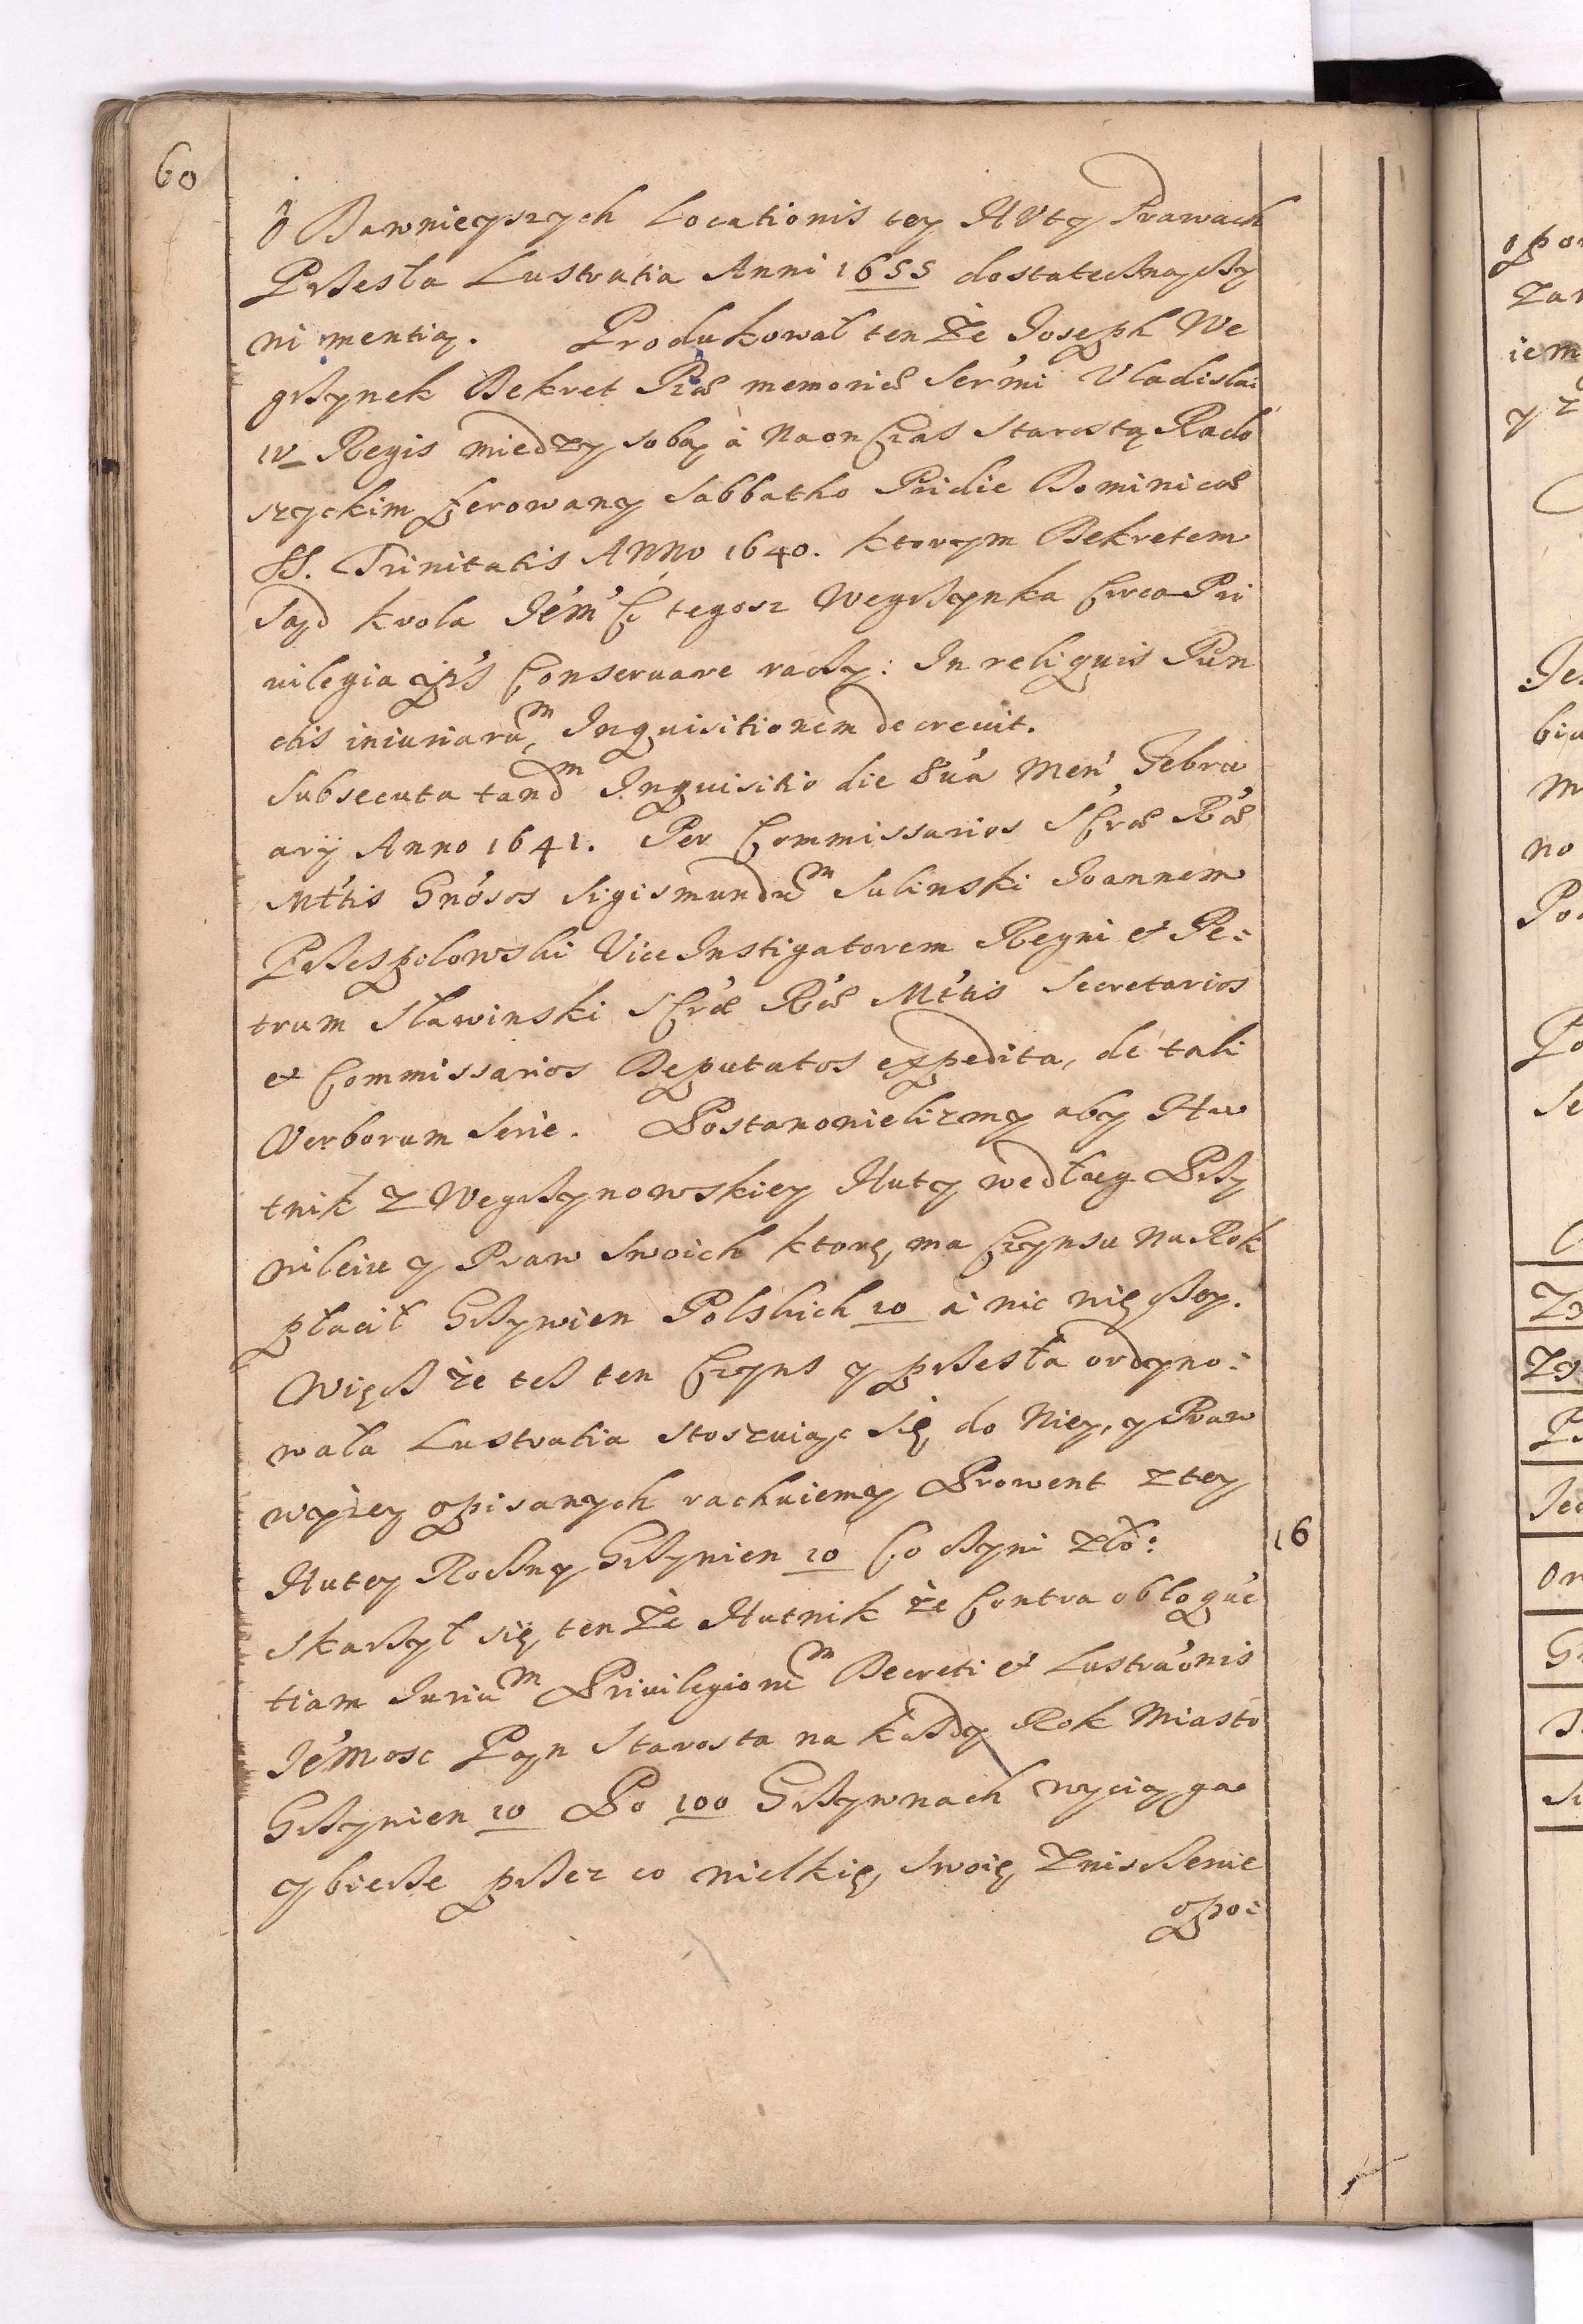 60
O Dawnieyszych Locationis tey Hvty Prawach
Przeszła Lustratia Anni 1655 dostateczną czy
ni mentią. Produkował tenże Joseph We
grzynek Dekret Piæ memoriæ Ser'mi Vladislai
IV Regis miedzy sobą à Naonczas Starostą Rado
szyckim ferowany Sabbatho Pridie Dominicæ
SS. Trinitatis Anno 1640. ktorym Dekretem
Sąd krola Je'm'Ci tegosz Wegrzynka Circa Pri
uilegia ip's Conseruare raczy: In reliquis Pun
ctis iniuriaru^m Inquisitionem decreuit.
Subsecuta tand^m Inquisitio die 8ua Men' Febru
arÿ Anno 1641. Per Commissarios S'Cræ R'æ
M'ttis Gn'osos Sigismundu^m Sulinski Joannem
Przespolowski Vice Instigatorem Regni et Pe:
trum Sławinski S'Cræ R'æ M'ttis Secretarios
et Commissarios Deputatos expedita, de tali
Verborum serie. Postanowielizmy aby Hu
tnik z Wegrzynowskiey Huty według Przy
wileiu y Praw Swoich ktorę ma Czynsu Na Rok
płacił Grzywien Polskich 10 à nic więczey.
Więcz że tesz ten Czyns y przeszła ordyno:
wała Lustratia stoszuiąc się do Niey, y Praw
wyżey opisanych rachuiemy Prowent z tey
Huty Roczny Grzywien 10 Co czyni zło: 16
Skarżył się tenże Hutnik że Contra obloque
tiam Juriu^m Priuilegioru^m Decreti et Lustra'onis
Je'Mosc Pan Starosta na każdy Rok Miasto
Grzywien 10 Po 100 Grzywnach wyciąga
y bierze przez co wielkię swoię Zniszczenie
opo: